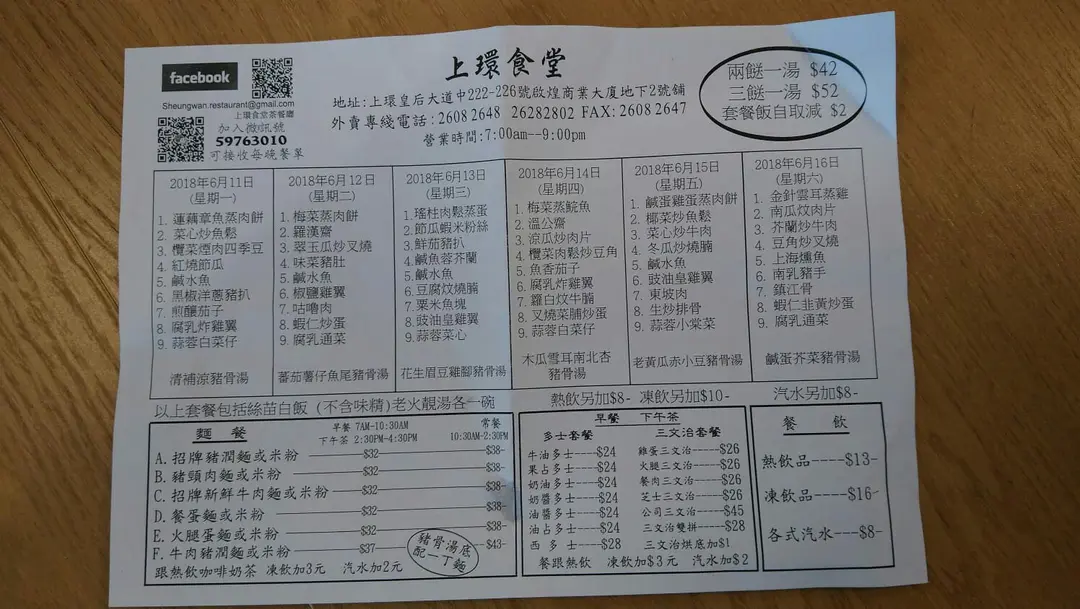 facebook
Sheungwan.restaurant@gmail.com
上環食堂茶餐廳
加入微訊號
59763010
可接收每晚餐單
上環食堂
地址:上環皇后大道中222-226號啟煌商業大廈地下2號舖
外賣專綫電話:2608 2648 26282802 FAX:2608 2647
營業時間:7:00am--9:00pm
兩餸一湯 $42
三餸一湯 $52
套餐飯自取減 $2
2018年6月11日
(星期一)
1. 蓮藕章魚蒸肉餅
2. 菜心炒魚鬆
3. 欖菜煙肉四季豆
4. 紅燒節瓜
5. 鹹水魚
6. 黑椒洋蔥豬扒
7. 煎釀茄子
8. 腐乳炸雞翼
9. 蒜蓉白菜仔
清補涼豬骨湯
2018年6月12日
(星期二)
1. 梅菜蒸肉餅
2. 羅漢齋
3. 翠玉瓜炒叉燒
4. 味菜豬肚
5. 鹹水魚
6. 椒鹽雞翼
7. 咕嚕肉
8. 蝦仁炒蛋
9. 腐乳通菜
蕃茄薯仔魚尾豬骨湯
2018年6月13日
(星期三)
1. 瑤柱肉鬆蒸蛋
2. 節瓜蝦米粉絲
3. 鮮茄豬扒
4. 鹹魚蓉芥蘭
5. 鹹水魚
6. 豆腐炆燒腩
7. 粟米魚塊
8. 豉油皇雞翼
9. 蒜蓉菜心
花生眉豆雞腳豬骨湯
2018年6月14日
(星期四)
1. 梅菜蒸鯇魚
2. 溫公齋
3. 涼瓜炒肉片
4. 欖菜肉鬆炒豆角
5. 魚香茄子
6. 腐乳炸雞翼
7. 蘿白炆牛腩
8. 叉燒菜脯炒蛋
9. 蒜蓉白菜仔
木瓜雪耳南北杏
豬骨湯
2018年6月15日
(星期五)
1. 鹹蛋雞蛋蒸肉餅
2. 椰菜炒魚鬆
3. 菜心炒牛肉
4. 冬瓜炒燒腩
5. 鹹水魚
6. 豉油皇雞翼
7. 東坡肉
8. 生炒排骨
9. 蒜蓉小棠菜
老黃瓜赤小豆豬骨湯
2018年6月16日
(星期六)
1. 金針雲耳蒸雞
2. 南瓜炆肉片
3. 芥蘭炒牛肉
4. 豆角炒叉燒
5. 上海燻魚
6. 南乳豬手
7. 鎮江骨
8. 蝦仁韭黃炒蛋
9. 腐乳通菜
鹹蛋芥菜豬骨湯
以上套餐包括絲苗白飯 (不含味精)老火靚湯各一碗
熱飲另加$8- 凍飲另加$10- 汽水另加$8-
麵 餐
早餐 7AM-10:30AM
下午茶 2:30PM-4:30PM
常餐
10:30AM-2:30PM
A. 招牌豬潤麵或米粉 $32 $38-
B. 豬頸肉麵或米粉 $32 $38-
C. 招牌新鮮牛肉麵或米粉 $32 $38-
D. 餐蛋麵或米粉 $32 $38-
E. 火腿蛋麵或米粉 $32 $38-
F. 牛肉豬潤麵或米粉 $37 $43-
跟熱飲咖啡奶茶 凍飲加3元 汽水加2元
豬骨湯底
配一丁麵
早餐 下午茶
多士套餐
牛油多士----$24
果占多士----$24
奶油多士----$24
奶醬多士----$24
油醬多士----$24
油占多士----$24
西 多 士----$28
三文治套餐
雞蛋三文治-----$26
火腿三文治-----$26
餐肉三文治-----$26
芝士三文治-----$26
公司三文治-----$45
三文治雙拼----$28
三文治烘底加$1
餐跟熱飲 凍飲加$3元 汽水加$2
餐 飲
熱飲品----$13-
凍飲品----$16-
各式汽水---$8-